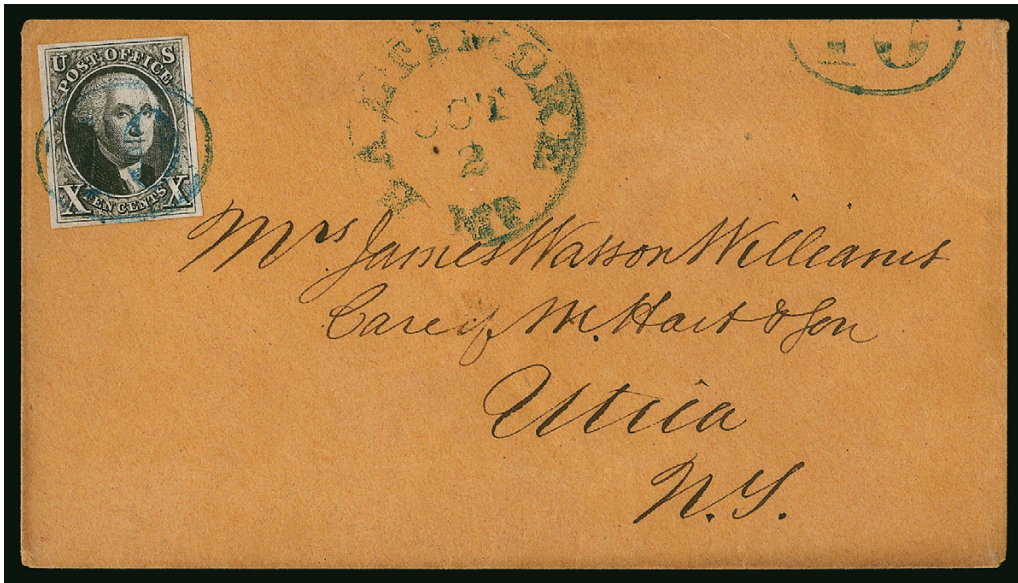 U S
POST OFFICE
X TEN CENTS X
BALTIMORE
OCT
2
MD
10
Mrs James Watson Williams
Care of M. Hart & Son
Utica
N.Y.